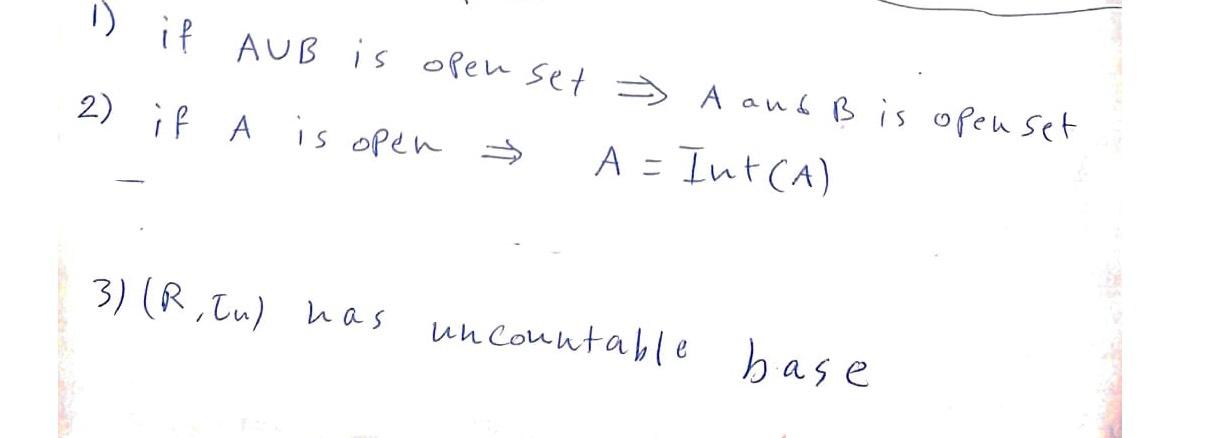 1) if A∪B is open set ⇒ A and B is open set
2) if A is open ⇒ A = Int(A)
3) (R, τu) has uncountable base